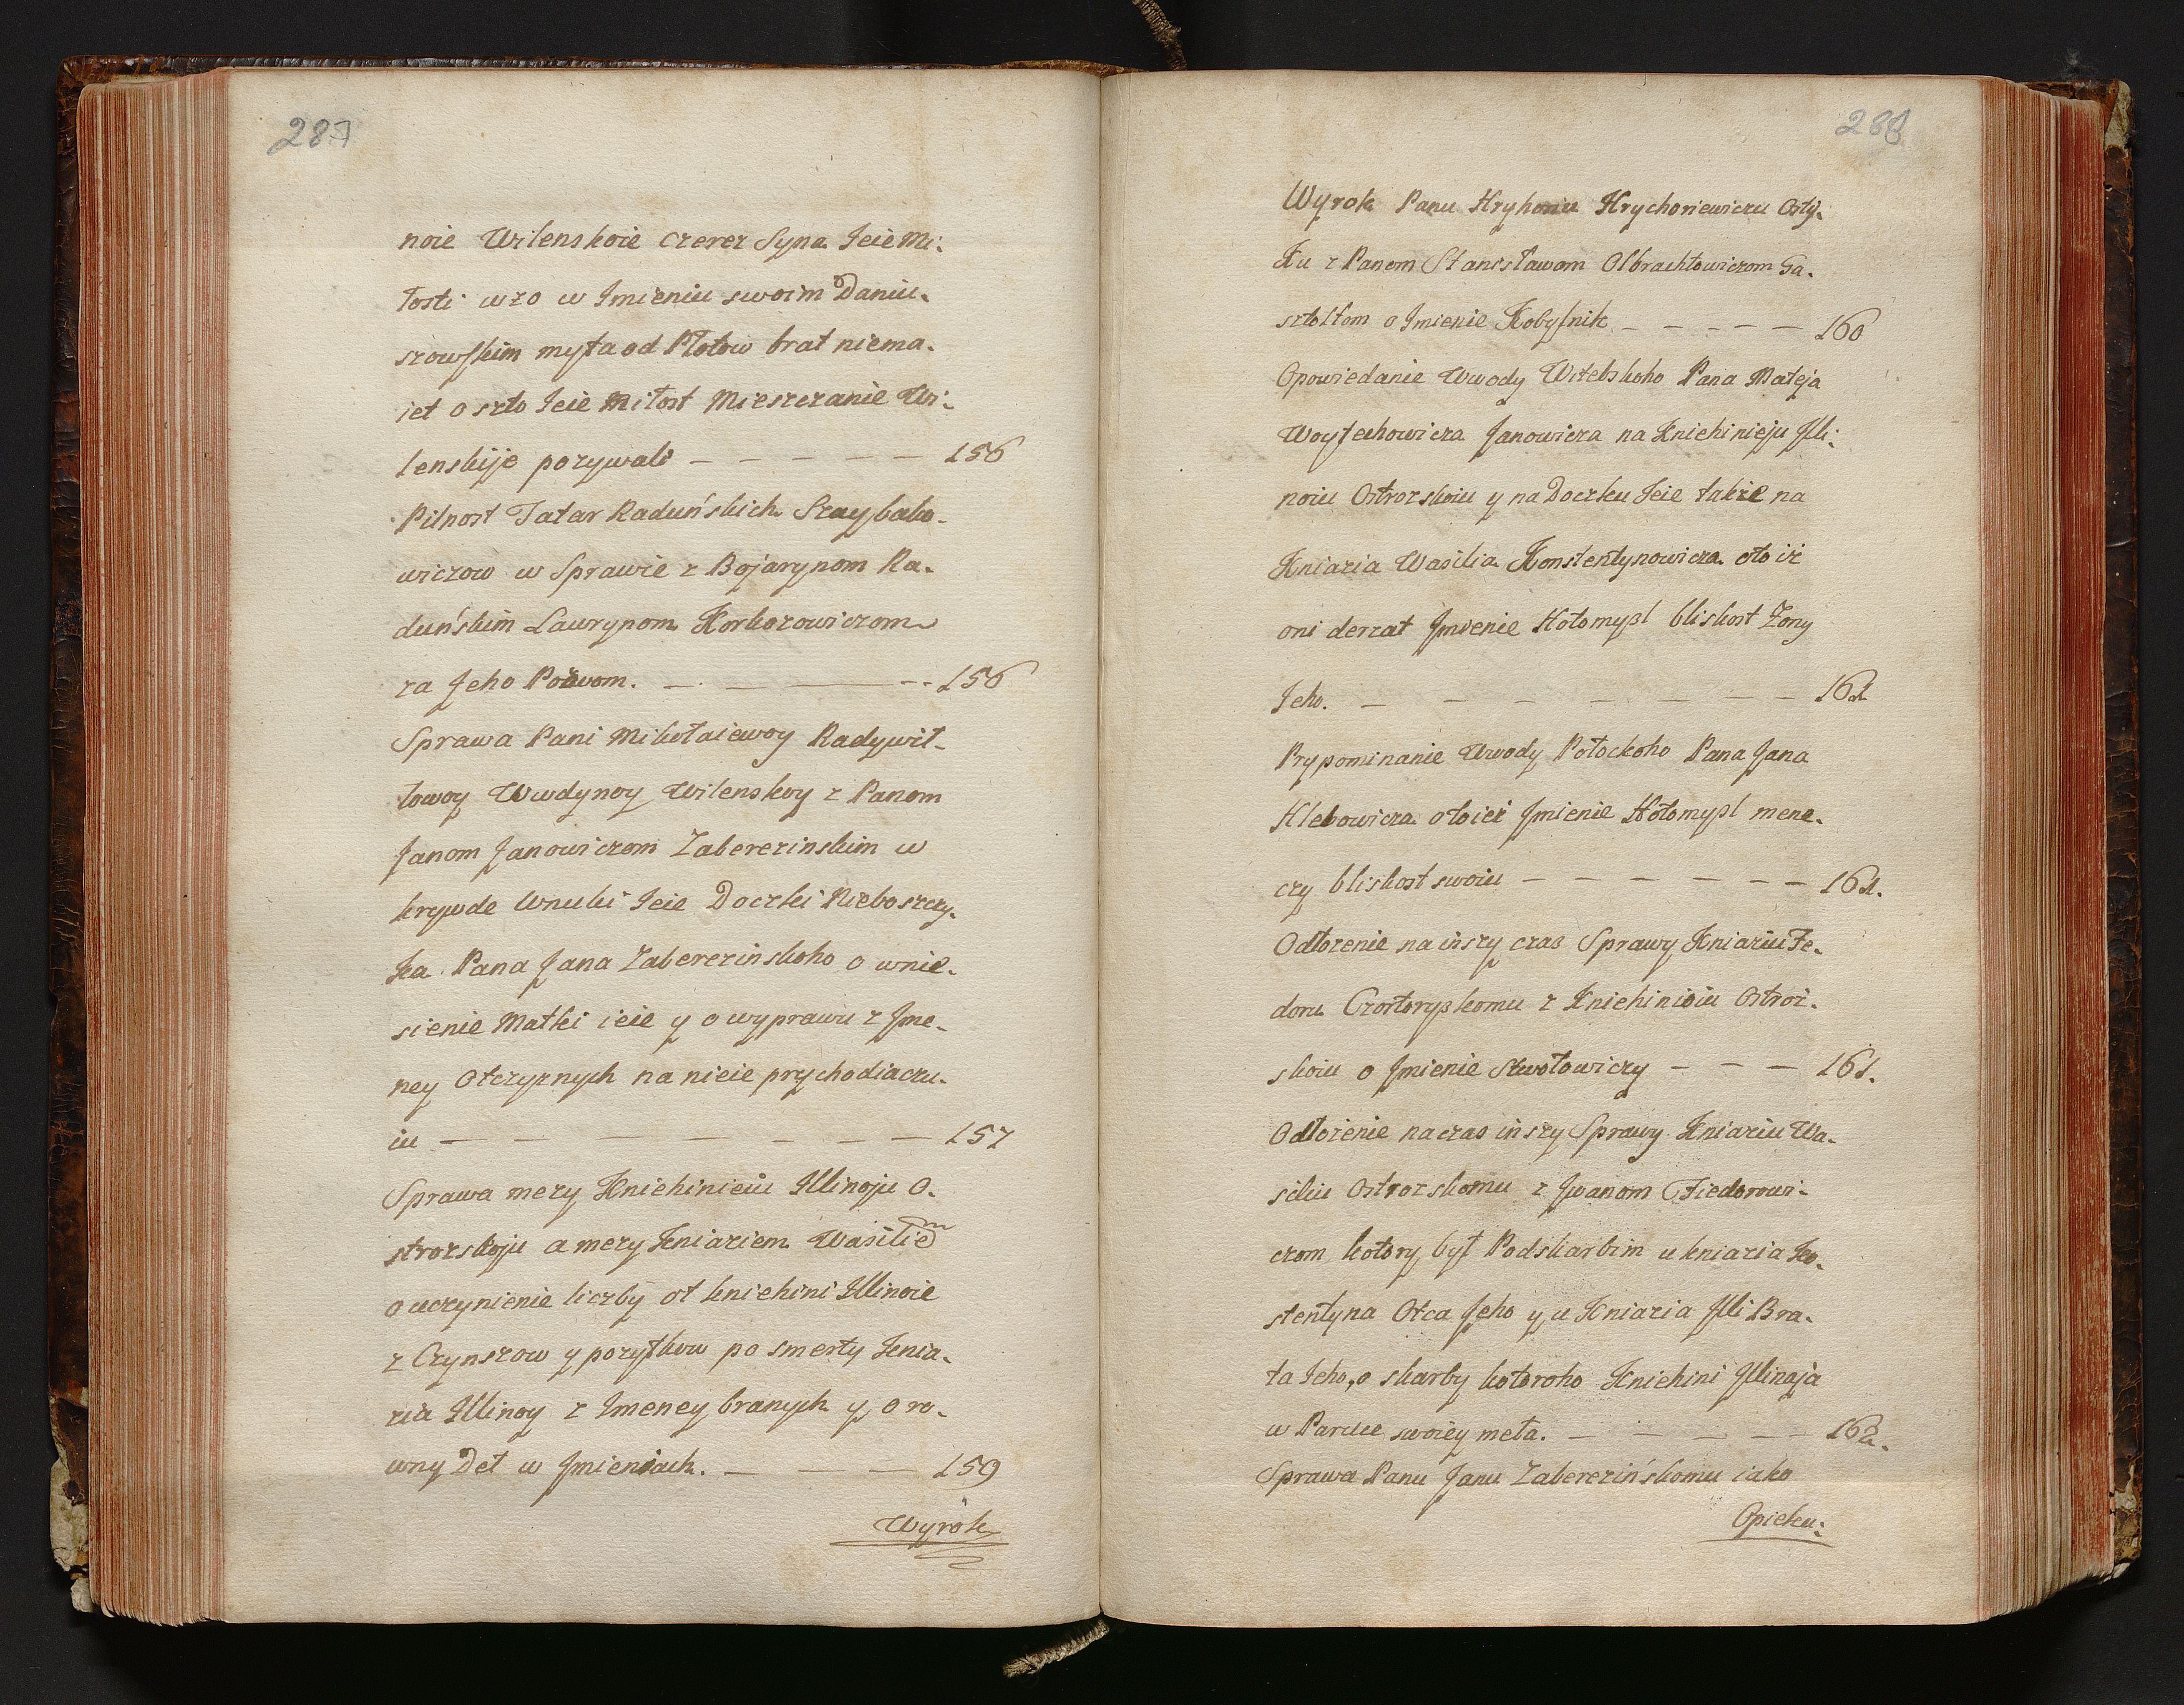 287
noie Wilenskoie czerez Syna Jeie Mi-
łosti wżo w Jmieniu swoim Daniu-
szowskim myta od Płotow brat niema-
iet oszto Jeie Miłost Mieszczanie Wi-
lenskije pozywali — — — — — — 156
Pilnost Tatar Raduńskich Szaybako-
wiczow w Sprawie z Bojarynom Ra-
duńskim Laurynom Korkozowiczom
za Jeho Pozwom. — — — — 156
Sprawa Pani Mikołaiewoy Radywił-
łowoy Wwdynoy Wilenskoy z Panom
Janom Janowiczom Zaberezinskim w
krywde Wnuki Jeie Doczki Nieboszczy-
ka Pana Jana Zaberezinskoho o wnie-
sienie Matki ieie y o wyprawu z Jme-
ney Otczyznych na nieie prychodiaczu-
iu — — — — — — — 157
Sprawa mezy Kniehinieiu Illinoju O-
strozskoju a mezy Kniaziem Wasiliem
o uczynienie liczby ot kniehini Illinoie
z Czynszow y pozytkow po smerty Knia-
zia Illinoy z Jmeney branych y o ro-
wny Deł w Jmieniach. — — — 159
Wyrok
288
Wyrok Panu Hryhoriu Hrychoriewiczu Osty-
Ku z Panom Stanisławom Olbrachtowiczom Ga-
sztołtom o Jmienie Kobylnik — — — — — 160
Opowiedanie Wwody Witebskoho Pana Mateja
Woytechowicza Janowicza na Kniehinieju Jlli-
noiu Ostrozskoiu y na Doczku Jeie takze na
Kniazia Wasilia Konstentynowicza oto iż
oni derzat Jmienie Hołomysl bliskost Zony
Jeho. — — — — — — — 161
Prypominanie Wwody Połockoho Pana Jana
Hlebowicza otoież Jmienie Hołomysl mene-
czy bliskost swoiu — — — — — — 161.
Odłozenie na inszy czas Sprawy Kniaziu Fe-
doru Czortoryskomu z Kniehinioiu Ostroz-
skoiu o Jmienie Stwołowiczy — — — 161.
Odłozenie na czas inszy Sprawy Kniaziu Wa-
siliu Ostrozskomu z Jwanom Fiedorowi-
czom kotory był Podskarbim u kniazia Ko-
stentyna Otca Jeho y u Kniazia Jlli Bra-
ta Jeho, o skarby kotoroho Kniehini Jllinaja
w Parucе swoiey meła. — — — — — 162.
Sprawa Panu Janu Zaberezińskomu iako
Opieku-